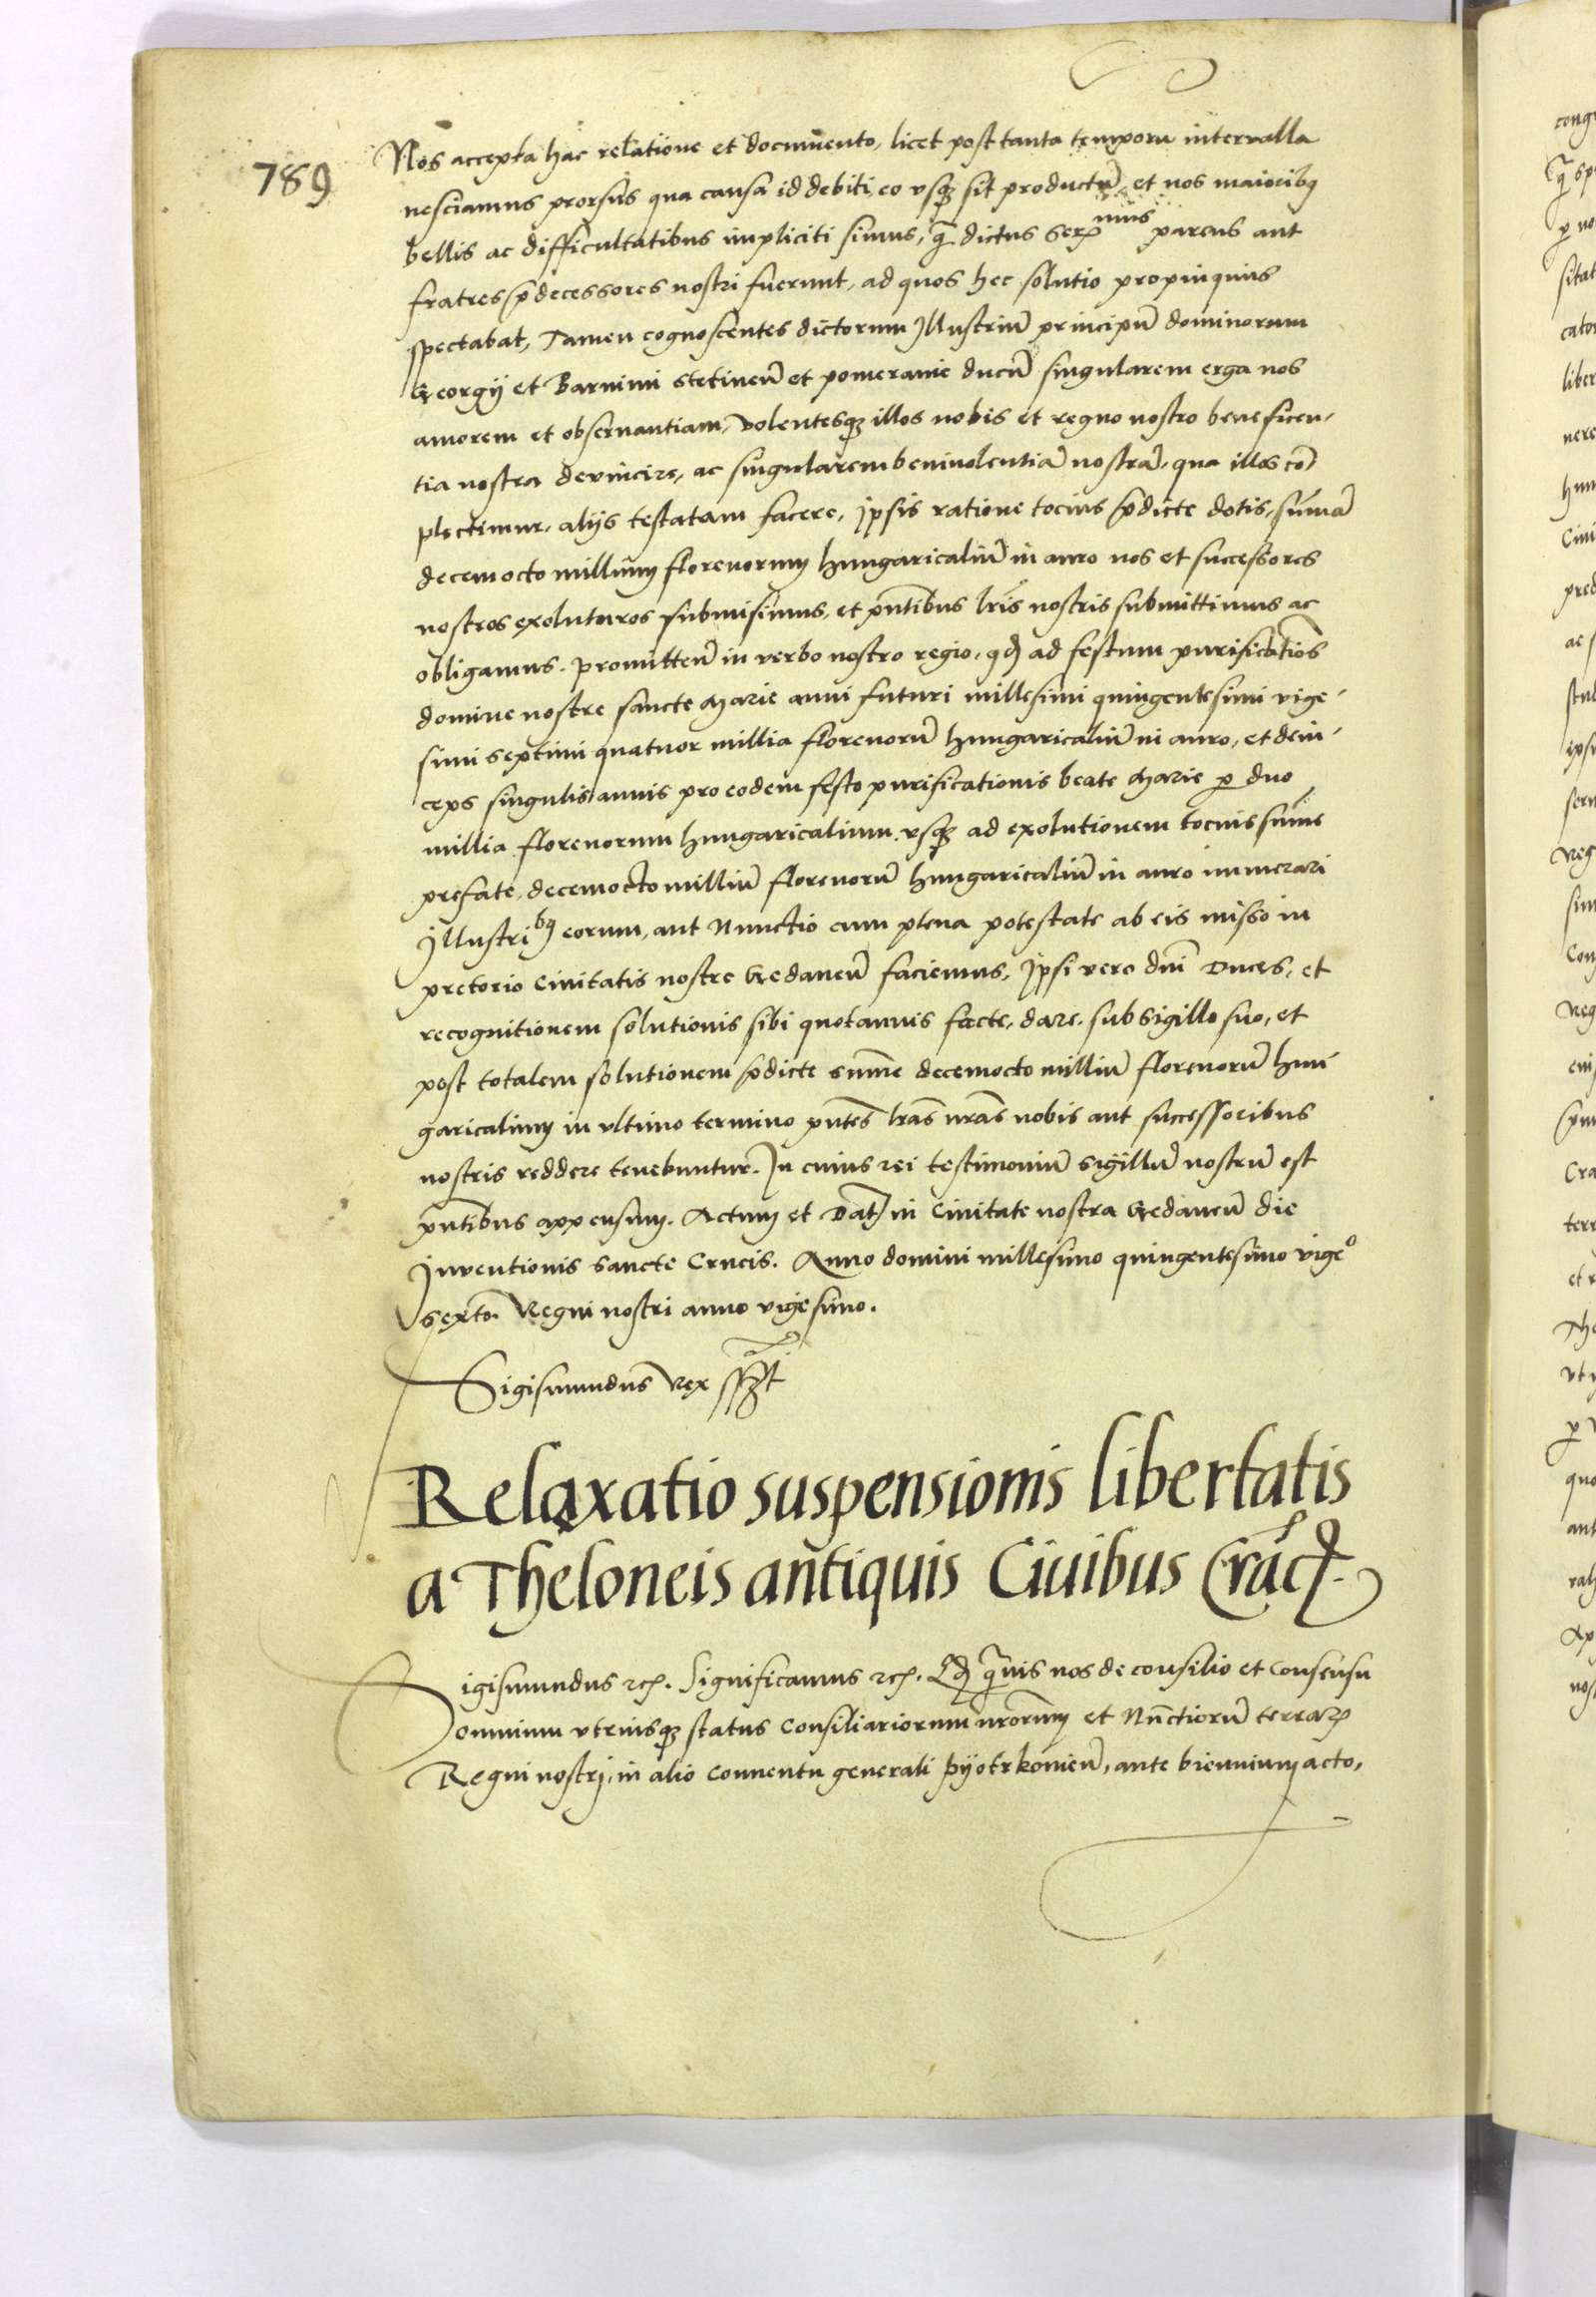 789
Nos accepta hac relatione et documento, licet post tanta temporu intervalla
nesciamus prorsus qua causa id debiti, eo usqꝫ sit productū, et nos maioribꝰ
bellis ac difficultatibus impliciti simus, ꝙ̄ dictus Serꝫ nmus parens aut
fratres p̄decessores nostri fuerunt, ad quos hec solutio propinquius
spectabat, Tamen cognoscentes dictorum Illustriū principū dominorum
Georgij et Barnimi Stetineñ et pomeranie ducū singularem erga nos
amorem et observantiam, volentesqꝫ illos nobis et regno nostro beneficen-
tia nostra devincire, ac singularem benivolentiā nostrā, qua illos cō
plectimur, alijs testatam facere, Ipsis ratione tocius p̄dicte dotis, sum̄ā
decemocto millium florenorum hungaricaliū in auro nos et successores
nostros exoluturos submisimus, et pn̄tibus lr̄is nostris submittimus ac
obligamus. promitteñ in verbo nostro regio, qđ ad festum purificatiōs
domine nostre sancte Marie anni futuri millesimi quingentesimi vige-
simi septimi quatuor millia florenorū hungaricaliū in auro, et dein-
ceps singulis annis pro eodem festo purificationis beate Marie ꝑ duo
millia florenorum hungaricalium usqꝫ ad exolutionem tocius sum̄e
prefate, decemocto milliū florenorū hungaricaliū in auro numerari
Illustribꝰ eorum, aut Nunctio cum plena potestate ab eis misso in
pretorio Civitatis nostre Gedaneñ faciemus, Ipsi vero dn̄i Duces, et
recognitionem solutionis sibi quotannis facte, dare, sub sigillo suo, et
post totalem solutionem p̄dicte sum̄e decemocto milliū florenorū hun
garicalium in ultimo termino pn̄tes lr̄as nr̄as nobis aut successoribus
nostris reddere tenebuntur. In cuius rei testimoniū sigillū nostrū est
pn̄tibus appensum. Actum et Dat in Civitate nostra Gedaneñ die
Inventionis Sancte Crucis. Anno domini millesimo quingentesimo vigeº
sexto. Regni nostri anno vigesimo.
Sigismundus Rex sszt
Relaxatio suspensionis libertatis
a Theloneis antiquis Civibus Crac̄
Sigismundus ꝛcꝭ. Significamus ꝛcꝭ. Qđ ꝙ̄vis nos de consilio et consensu
omnium utriusqꝫ status Consiliariorum nr̄orum et Nūctiorū terraꝝ
Regni nostrj, in alio Conventu generali Pijotrkowieñ, ante biennium acto,